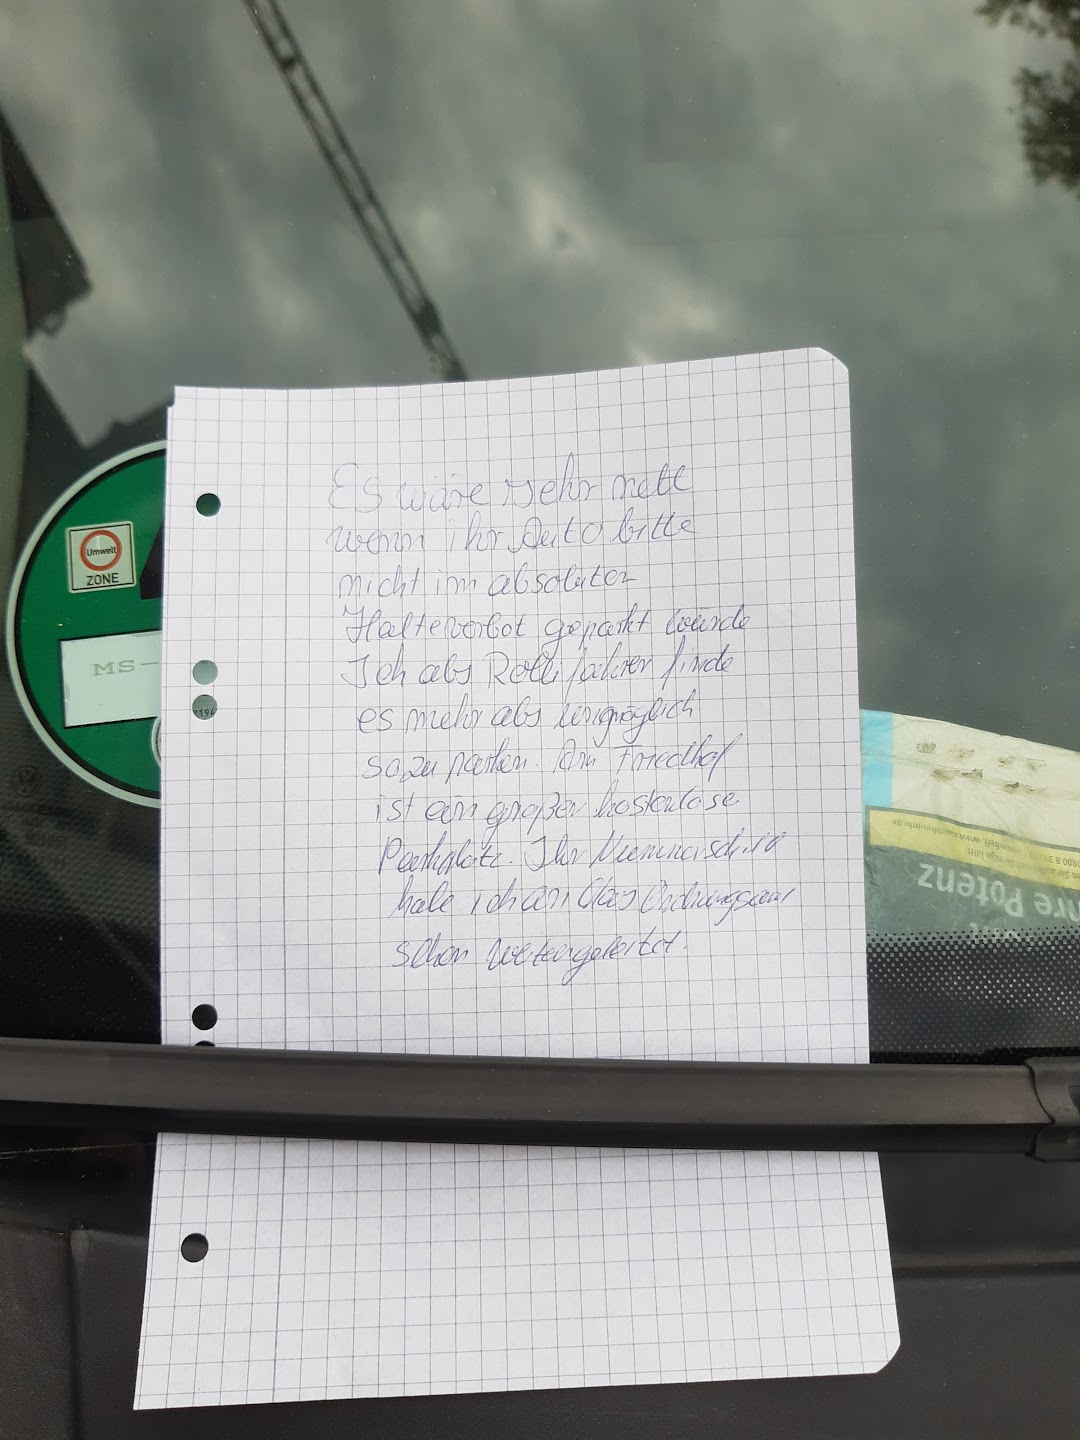 Es wäre sehr nett
wenn ihr Auto bitte
nicht im absoluten
Halteverbot geparkt würde
Ich als Rollifahrer finde
es mehr als unmöglich
so zu parken. Am Friedhof
ist ein großer kostenlose
Parkplatz. Ihr Nummernschild
habe ich an das Ordnungsamt
schon weitergeleitet.
Umwelt
ZONE
MS-
www.rauchfrei-info.de
0800 8 31
hre Potenz